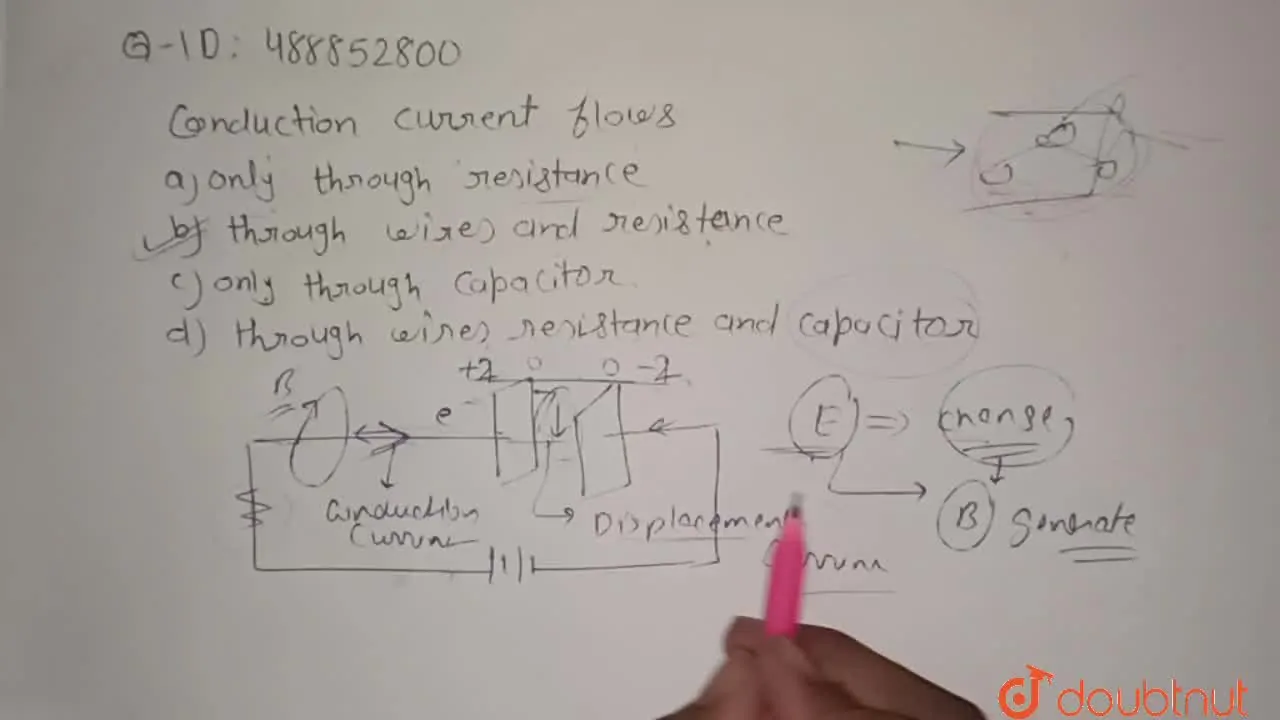 Q-ID: 488852800
Conduction current flows
a) only through resistance
b) through wires and resistance
c) only through capacitor
d) through wires, resistance and capacitor
B
e
+q 0 0 -q
E ⇒ change,
Conduction
Current
Displacement
Current
B generate
doubtnut